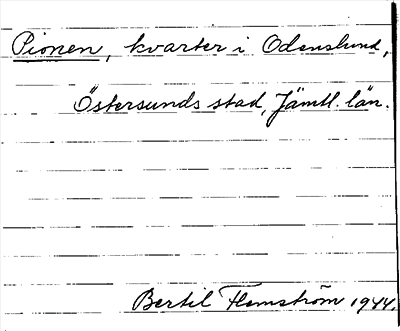 Pionen, kvarter i Odenslund,
Östersunds stad, Jämtl. län.
Bertil Flemström 1944.